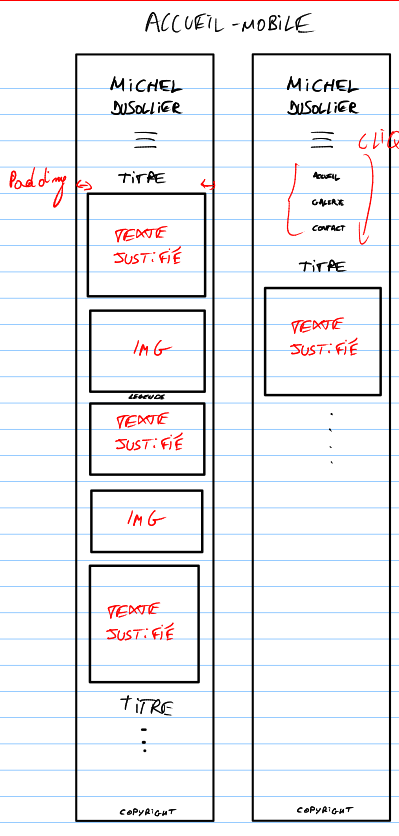 ACCUEIL-MOBILE
MICHEL
DUSOLLIER
Padding
TITRE
TEXTE
JUSTIFIÉ
IMG
LEGENDE
TEXTE
JUSTIFIÉ
IMG
TEXTE
JUSTIFIÉ
TITRE
COPYRIGHT
MICHEL
DUSOLLIER
CLIQ
ACCUEIL
GALERIE
CONTACT
TITRE
TEXTE
JUSTIFIÉ
COPYRIGHT